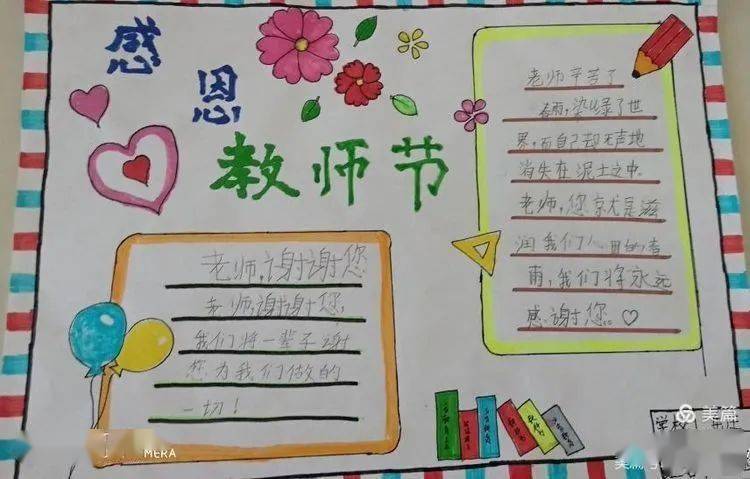 感恩
教师节
老师辛苦了
春雨,染绿了世
界,而自己却无声地
消失在泥土之中。
老师,您就是滋
润我们心田的春
雨,我们将永远
感谢您。
老师,谢谢您
老师,谢谢您,
我们将一辈子谢
您为我们做的
一切!
学校
美篇
MERA
美篇